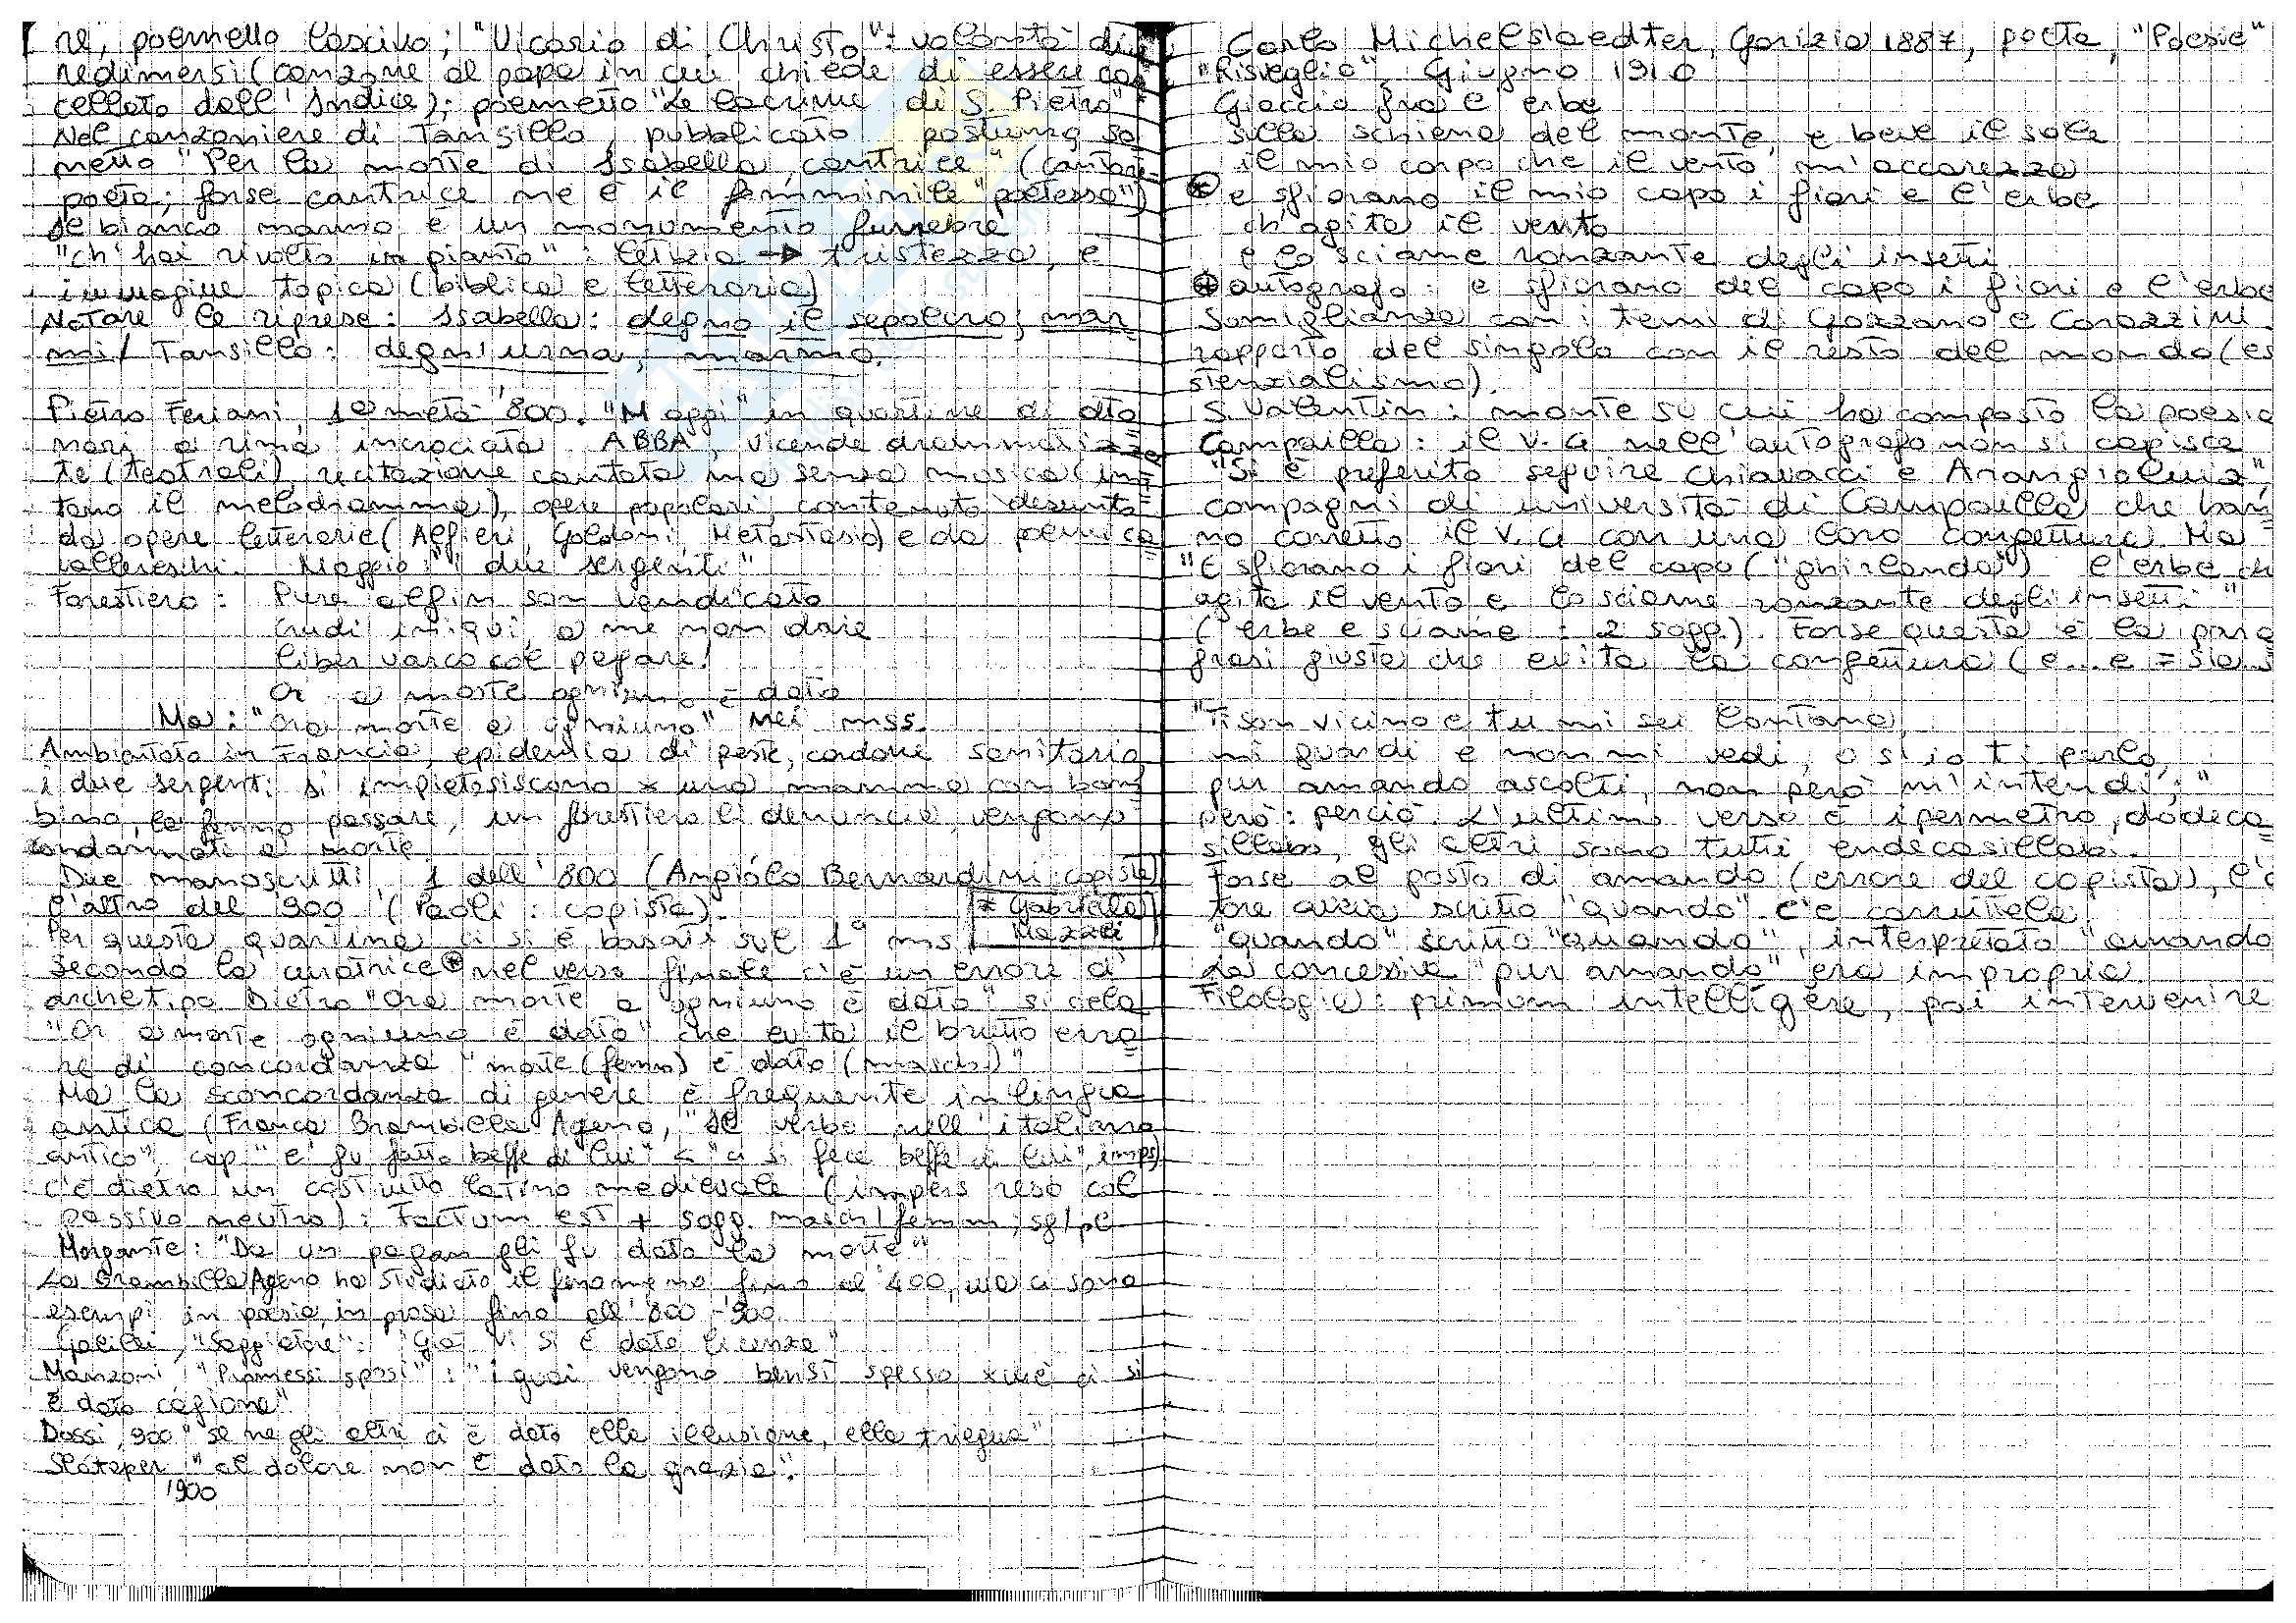 re, poemetto lascivo; "Vicario di Christo": volontà di
redimersi (canzone al papa in cui chiede di essere can
cellato dall'Indice); poemetto "Le lacrime di S. Pietro"
Nel canzoniere di Tansillo, pubblicato postumo so
netto "Per la morte di Isabella, cantrice" (cantore=
poeta; forse cantrice ne è il femminile "poetessa")
Il bianco marmo è un monumento funebre
"ch'hai rivolto in pianto": letizia → tristezza, è
immagine topica (biblica e letteraria)
Notare le riprese: Isabella: degno il sepolcro; mar
mi / Tansillo: degn'urna, marmo.
Pietro Feriani, 1a metà '800. "Maggi" in quartine di otto
nari a rima incrociata ABBA, vicende drammatizza
te (teatrali), recitazione cantata ma senza musica (imi
tano il melodramma), opere popolari, contenuto desunto
da opere letterarie (Alfieri, Goldoni, Metastasio) e da poemi ca
vallereschi. Maggio: "I due sergenti"
Forestiero: Pure alfin son vendicato
crudi iniqui, a me non dare
liber varco col pegare!
Or a morte ogniuno è dato
Ma: "Ora morte a ogniuno" nei mss.
Ambientato in Francia, epidemia di peste, cordone sanitario
i due sergenti si impietosiscono x una mamma con bam
bino, la fanno passare, un forestiero li denuncia, vengono
condannati a morte
Due manoscritti, 1 dell'800 (Angiolo Bernardini copista)
l'altro del '900 (Paoli: copista).
* Gabriella
Per questa quartina ci si è basati sul 1° ms.
Secondo la curatrice * nel verso finale c'è un errore di
archetipo. Dietro "Ora morte a ogniuno è dato" si cela
"Or a morte ogniuno è dato" che evita il brutto erro
re di concordanza "morte (femm) è dato (masch.)"
Ma la sconcordanza di genere è frequente in lingua
antica (Franca Brambilla Ageno, "Il verbo nell'italiano
antico", cap. "e' fu fatto beffe di lui" < "ci si fece beffe di lui", imps)
c'è dietro un costrutto latino medievale (impers reso col
passivo neutro): Factum est + sogg. masch/femm; sg/pl
Morgante: "Da un pagan gli fu dato la morte"
La Brambilla Ageno ha studiato il fenomeno fino al '400, ma ci sono
esempi in poesia, in prosa fino all'800-'900
Galilei, "Saggiatore": "Già vi si è dato licenza"
Manzoni "Promessi sposi": "i guai vengono bensì spesso xché ci si
è dato cagione"
Dossi, 900 "se negli altri ci è dato alla illusione, alla triegua"
Slataper "al dolore non è dato la grazia".
'900
Carlo Michelstaedter, Gorizia 1887, poeta, "Poesie"
"Risveglio", Giugno 1910
Giaccio fra l'erbe
sulla schiena del monte, e beve il sole
il mio corpo che il vento m'accarezza
* e sfiorano il mio capo i fiori e l'erbe
ch'agita il vento
e lo sciame ronzante degli insetti
* autografo: e sfiorano del capo i fiori e l'erbe
Somiglianza con i temi di Gozzano e Corazzini.
rapporto del singolo con il resto del mondo (esi
stenzialismo).
S. Valentin: monte su cui ha composto la poesia
Campailla: il v. 4 nell'autografo non si capisce
"Si è preferito seguire Chiavacci e Arangioluiz",
compagni di università di Campailla che han
no corretto il v. 4 con una loro congettura. Ma
"E sfiorano i fiori del capo ("ghirlanda") l'erbe ch'
agita il vento e lo sciame ronzante degli insetti"
(erbe e sciame: 2 sogg.). Forse questa è la para
frasi giusta che evita la congettura (e...e = sia...
"Ti son vicino e tu mi sei lontano,
mi guardi e non mi vedi, o s'io ti parlo,
pur amando ascolti, non però m'intendi;"
però: perciò. L'ultimo verso è ipermetro, dodeca
sillabo, gli altri sono tutti endecasillabi.
Forse al posto di amando (errore del copista), l'au
tore aveva scritto "quando" e c'è corruttela.
"quando" scritto "quando", interpretato "amando
La concessiva "pur amando" era impropria.
Filologia: primum intelligere, poi intervenire